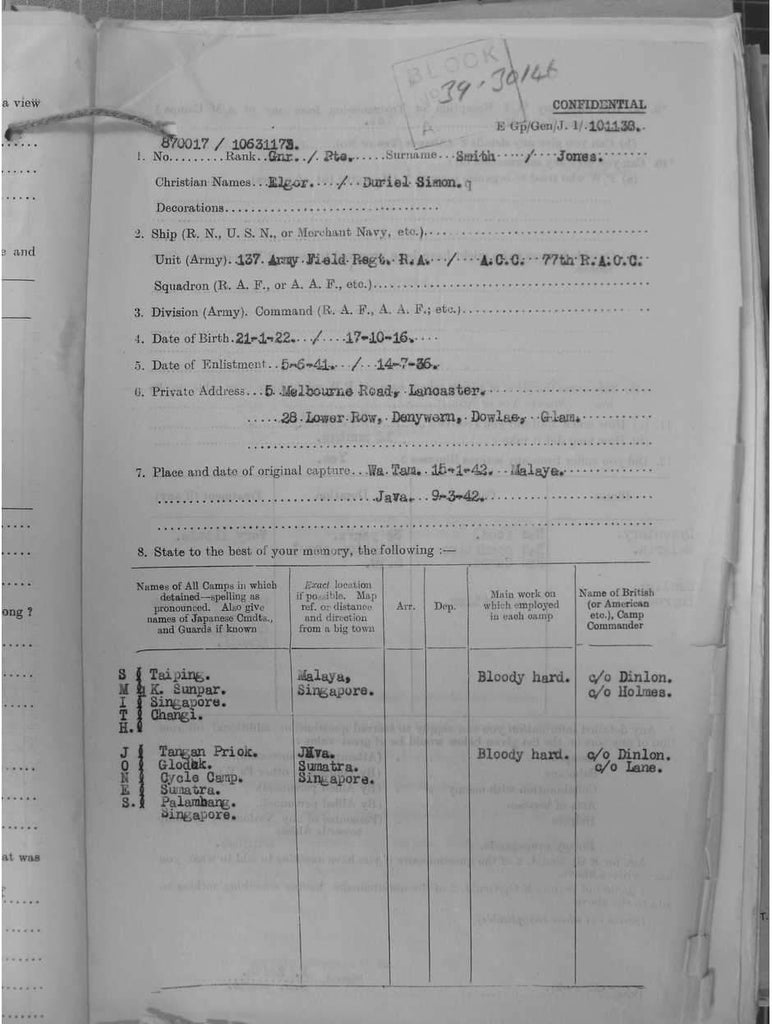 a view
e and
ong ?
at was
BLOCK
39·30146
A
CONFIDENTIAL
E Gp/Gen/J. 1/.101138.
870017 / 10631173.
1. No.........Rank..Gnr../. Pte.....Surname...Smith...../....Jones.
Christian Names...Elgor..../.. Duriel Simon.
Decorations...............................
2. Ship (R. N., U. S. N., or Merchant Navy, etc.)...............................
Unit (Army). 137. Army Field Regt. R.A.../....A.C.C. 77th R.A.O.C.
Squadron (R. A. F., or A. A. F., etc.)...............................
3. Division (Army). Command (R. A. F., A. A. F.; etc.)...............................
4. Date of Birth.21-1-22.../....17-10-16.....
5. Date of Enlistment..5-6-41.../..14-7-36.
6. Private Address...5 Melbourne Road, Lancaster.
28 Lower Row, Denywern, Dowlae, Glam.
7. Place and date of original capture...Wa. Tam. 15-1-42. Malaya.
Java. 9-3-42.
8. State to the best of your memory, the following :—
Names of All Camps in which detained—spelling as pronounced. Also give names of Japanese Cmdts., and Guards if known
Exact location if possible. Map ref. or distance and direction from a big town
Arr.
Dep.
Main work on which employed in each camp
Name of British (or American etc.), Camp Commander
S Taiping. Malaya, Bloody hard. c/o Dinlon.
M K. Sunpar. Singapore. c/o Holmes.
I Singapore.
T Changi.
H.
J Tangan Priok. Java. Bloody hard. c/o Dinlon.
O Glodok. Sumatra. c/o Lane.
N Cycle Camp. Singapore.
E Sumatra.
S. Palambang.
Singapore.
T.